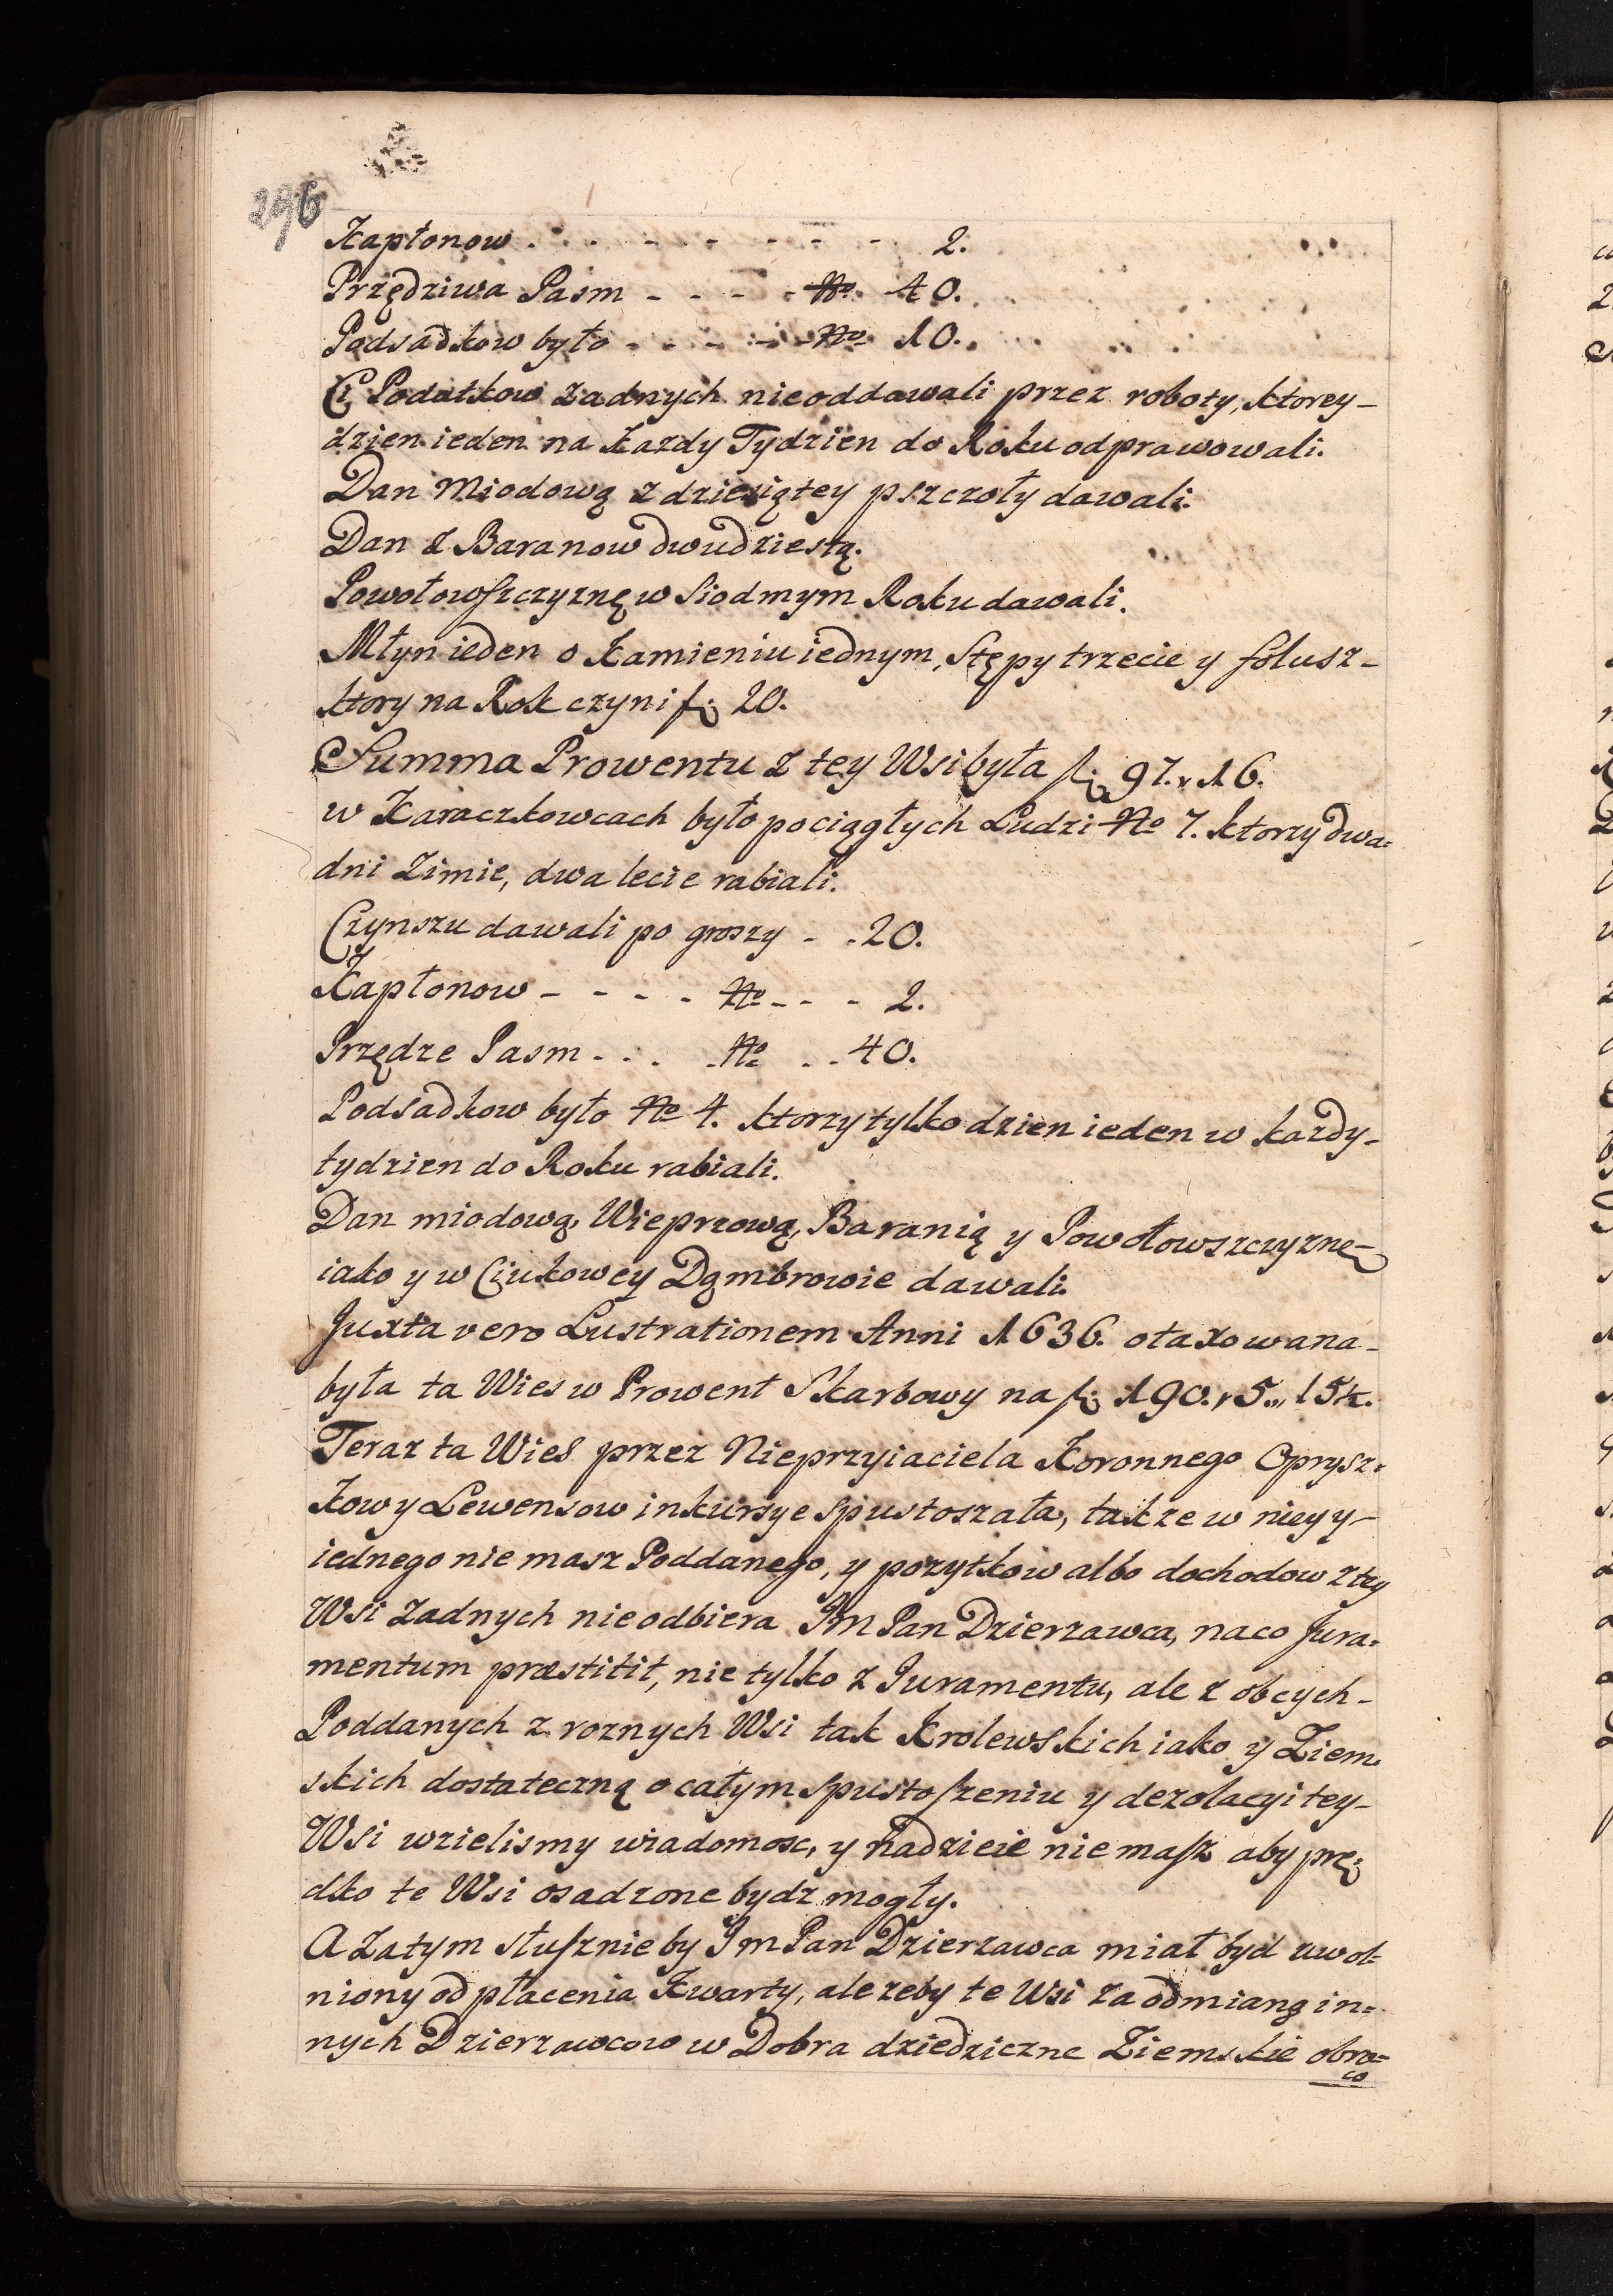 296
Kapłonow . . . - - - - - 2.
Przędziwa Pasm - - - - No. 40.
Podsadkow było - - - - - No 10.
Ci Podatkow zadnych nieoddawali przez roboty, ktorey-
dzien ieden na Kazdy Tydzien do Roku odprawowali.
Dan Miodową z dziesiątey pszczoły dawali.
Dan z Baranow dwudziestą.
Powołowszczyznę w Siodmym Roku dawali.
Młyn ieden o Kamieniu iednym, Stępy trzecie y folusz-
ktory na Rok czyni f: 20.
Summa Prowentu z tey Wsi była f: 97. „ 16.
w Karaczkowcach było pociągłych Ludzi No 7. ktorzy dwa-
dni Zimie, dwa lecie rabiali.
Czynszu dawali po groszy - . 20.
Kapłonow - - - - No - - - 2.
Przędze Pasm - . . . No . . 40.
Podsadkow było No 4. ktorzy tylko dzien ieden w kazdy-
tydzien do Roku rabiali.
Dan miodową, Wieprzową, Baranią y Powołowszczyznę-
iako y w Ciukowey Dąmbrowie dawali.
Juxta vero Lustrationem Anni 1636. otaxowana-
była ta Wies w Prowent Skarbowy na f: 190. „ 5 „ 15½.
Teraz ta Wies przez Nieprzyiaciela Koronnego Oprysz-
kow y Lewensow inkursye spustoszała, takze w niey y-
iednego nie masz Poddanego, y pozytkow albo dochodow z tey
Wsi zadnych nieodbiera Jm Pan Dzierzawca, naco Jura-
mentum præstitit, nie tylko z Juramentu, ale z obcych-
Poddanych z roznych Wsi tak Krolewskich iako y Ziem-
skich dostateczną o całym spustoszeniu y dezolacyi tey-
Wsi wzielismy wiadomosc, y nadzieie niemasz aby prę-
dko te Wsi osadzone bydz mogły.
A zatym słusznie by Jm Pan Dzierzawca miał byd uwol-
niony od płacenia Kwarty, ale zeby te Wsi za odmianą in-
nych Dzierzawcow w Dobra dziedziczne Ziemskie obro-
co